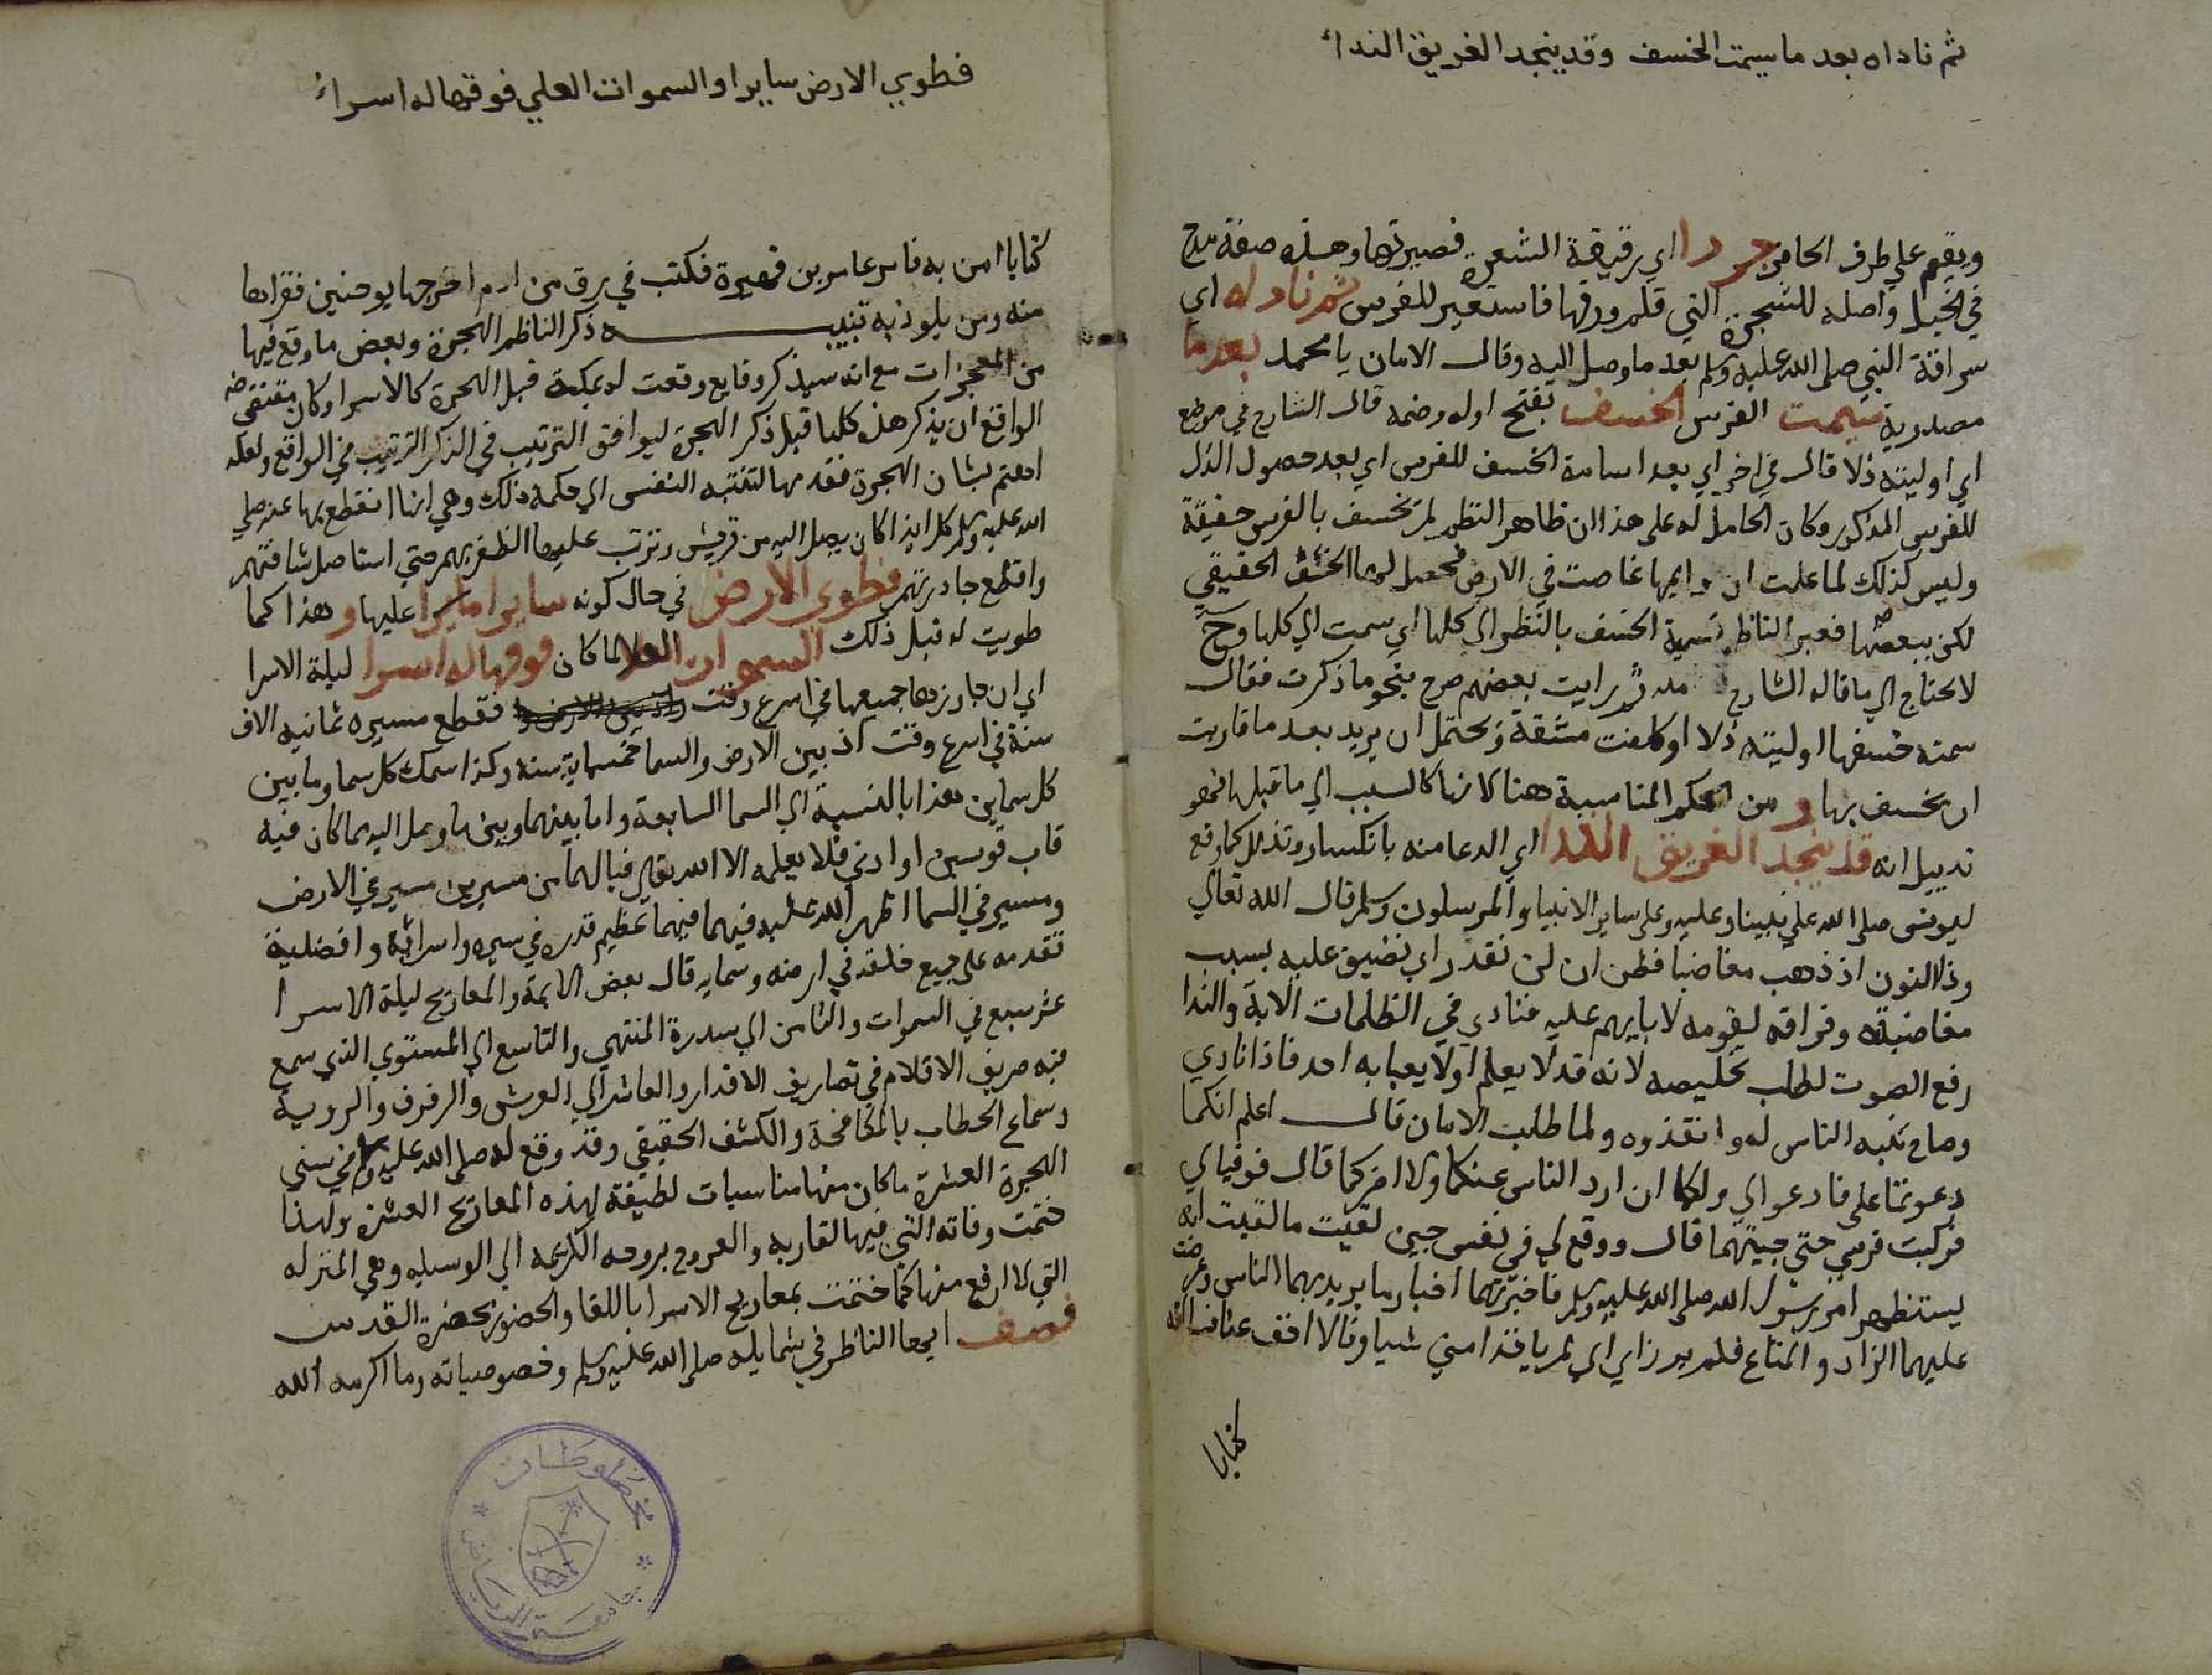 ثم ناداه بعد ما سيمت الخسف وقد ينجد الغريق النداء
ويقيم علي طرف الحافر جردا اي رقيقة الشعرة قصيرتها وهذه صفة مدح
في الخيل واصله للشجرة التي قلم ورقها فاستعير للفرس ثم ناداه اي
سراقة النبي صلي الله عليه وسلم بعد ما وصل اليه وقال الامان يا محمد بعد ما
مصدرية سيمت الفرس الخسف بفتح اوله وضمه قال الشارح في موضع
اي اوليته ذلا قال في اخر اي بعد اسامة الخسف للفرس اي بعد حصول الذل
للفرس المذكور وكان الحامل له علي هذا ان ظاهر النظم لم تخسف بالفرس حقيقة
وليس كذلك لما علمت ان قوايمها غاصت في الارض فحصل لها الخسف الحقيقي
لكن ببعضها فعبر الناظم تسمية الخسف بالنظر الي كلها اي سمت الي كلها وح
لا يحتاج الي ما قاله الشارح ثم رايت بعضهم صرح بنحو ما ذكرت فقال
سمته خسفها اوليته ذلا او كلفت مشقة ويحتمل ان يريد بعد ما قاربت
ان يخسف بها و من الحكم المناسبة هنا لانها كالسبب الي ما قبلها فهو
تذييل انه قد ينجد الغريق الندا اي الدعا منه بانكسار وتذلل كما وقع
ليونس صلي الله علي نبينا وعليه وعلي ساير الانبيا والمرسلون وسلم قال الله تعالي
وذا النون اذ ذهب مغاضبا فظن ان لن نقدر اي نضيق عليه بسبب
مغاضبته وفراقه لقومه لابايهم عليه فنادي في الظلمات الاية والندا
رفع الصوت لطلب تخليصه لانه قد لا يعلم او لا يعبا به احد فاذا نادي
وصاح تنبه الناس له وانقذوه ولما طلب الامان قال اعلم انكما
دعوتما علي فادعوا لي ولكما ان ارد الناس عنكما ولا اضركما قال فوقفا لي
فركبت فرسي حتي جيتهما قال ووقع لي في نفس حين لقيت ما لقيت انه
يستظهر امر رسول الله صلي الله عليه وسلم فاخبرتهما اخبار ما يريد بهما الناس وعرضت
عليهما الزاد والمتاع فلم يرزاي اي لم ياخذا مني شيا وقالا اخف عنا فسالته
كتابا
فطوي الارض سايرا والسموات العلي فوقها له اسراء
كتابا امن به فامر عامر بن فهيرة فكتب في رق من ادم اخرجها يوحنين فقراها
منه ومن يلوذ به تنبيه ذكر الناظم الهجرة وبعض ما وقع فيها
من المعجزات مع انه سيذكر وقايع وقعت له بمكة قبل الهجرة كالاسرا وكان مقتضي
الواقع ان يذكر هذه كلها قبل ذكر الهجرة ليوافق الترتيب في الذكر الترتيب في الواقع ولعله
اهتم بشان الهجرة فقدمها لتنتبه النفس الي حكمة ذلك وهي انها انقطع بها عنه صلي
الله عليه وسلم كل ايذا كان يصل اليه من قريش وترتب عليها الظفر بهم حتي استاصل شافتهم
واقطع جادرتهم فطوي الارض في حال كونه سايرا مايرا عليها و هذا كما
طويت له قبل ذلك السموات العلا لما كان فوقها له اسرا ليلة الاسرا
اي ان جاوزها جميعها في اسرع وقت فقطع مسيره ثمانيه الاف
سنة في اسرع وقت اذ بين الارض والسما خمسماية سنه وكذا سمك كل سما وما بين
كل سماين هذا بالنسبة الي السما السابعة واما بينهما وبين ما وصل اليه مما كان فيه
قاب قوسين او ادني فلا يعلمه الا الله تعالي فيا لهما من مسيرين مسير في الارض
ومسير في السما اظهر الله عليه فيهما فيهما عظيم قدره في سيره واسرائه وافضلية
تقدمه علي جميع خلقه في ارضه وسمايه قال بعض الايمة والمعاريج ليلة الاسرا
عشر سبع في السموات والثامن الي سدرة المنتهي والتاسع الي المستوي الذي سمع
فيه صريف الاقلام في تصاريف الاقدار والعاشر الي العرش والرفرف والروية
وسماع الخطاب بالمكافحة والكشف الحقيقي وقد وقع له صلي الله عليه وسلم في سني
الهجرة العشرة ما كان منها مناسبات لطيفة لهذه المعاريج العشرة ولهذا
ختمت وفاته التي فيها لقا ربه والعروج بروحه الكريمه الي الوسيله وهي المنزله
التي لا ارفع منها كما ختمت بمعاريج الاسرا باللقا والحضور بحضرة القدس
فصف ايها الناظر في شمايله صلي الله عليه وسلم وخصوصياته وما اكرمه الله
مخطوطات
جامعة الرياض